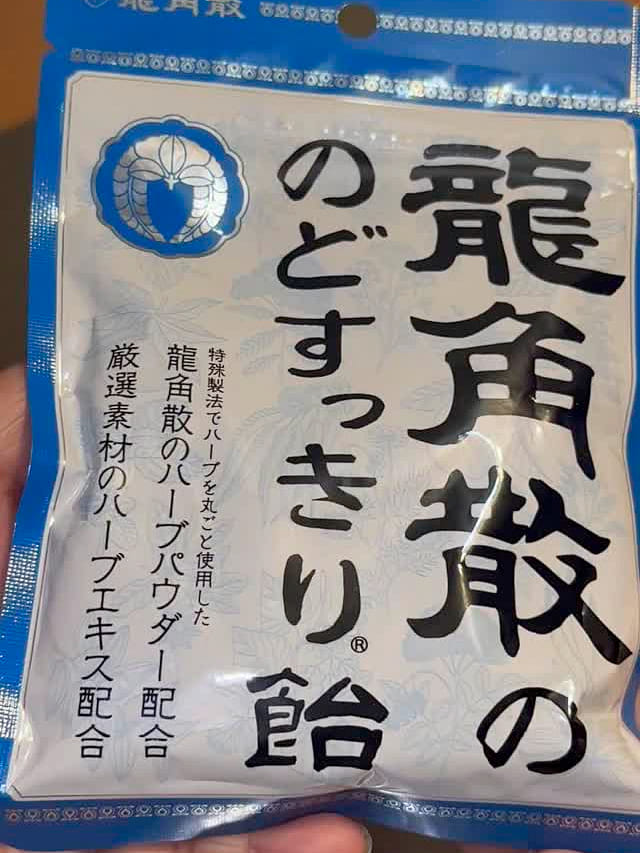 龍角散
龍角散の
のどすっきり®飴
特殊製法でハーブを丸ごと使用した
龍角散のハーブパウダー配合
厳選素材のハーブエキス配合